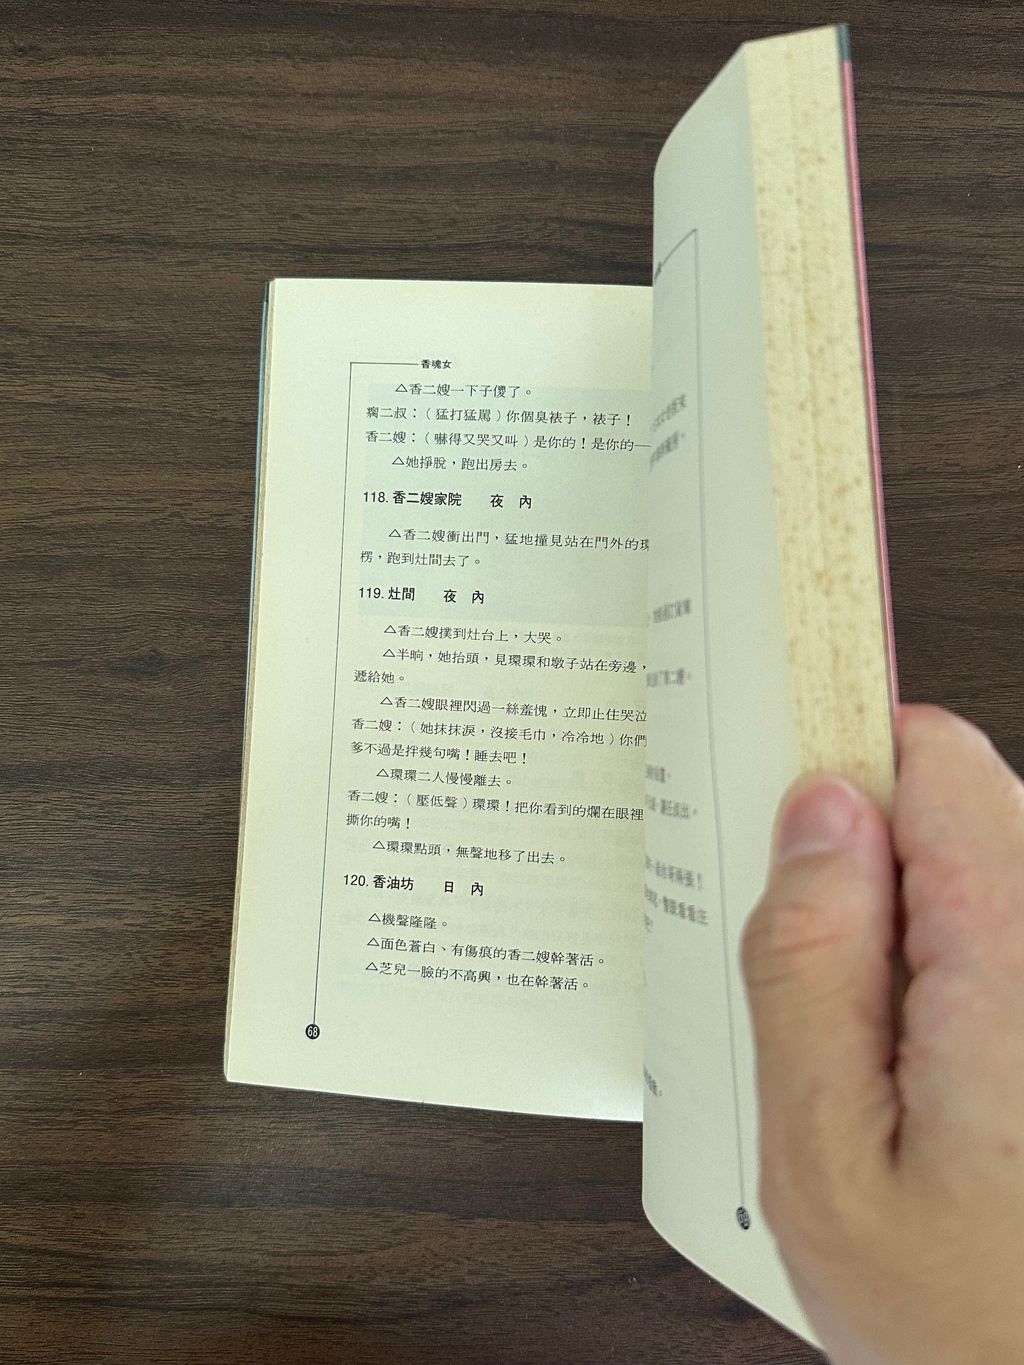 香魂女
△香二嫂一下子傻了。
瘸二叔:(猛打猛罵)你個臭裱子,裱子!
香二嫂:(嚇得又哭又叫)是你的!是你的—
△她掙脫,跑出房去。
118. 香二嫂家院 夜 內
△香二嫂衝出門,猛地撞見站在門外的環
楞,跑到灶間去了。
119. 灶間 夜 內
△香二嫂撲到灶台上,大哭。
△半晌,她抬頭,見環環和墩子站在旁邊,
遞給她。
△香二嫂眼裡閃過一絲羞愧,立即止住哭泣
香二嫂:(她抹抹淚,沒接毛巾,冷冷地)你們
爹不過是拌幾句嘴!睡去吧!
△環環二人慢慢離去。
香二嫂:(壓低聲)環環!把你看到的爛在眼裡
撕你的嘴!
△環環點頭,無聲地移了出去。
120. 香油坊 日 內
△機聲隆隆。
△面色蒼白、有傷痕的香二嫂幹著活。
△芝兒一臉的不高興,也在幹著活。
68